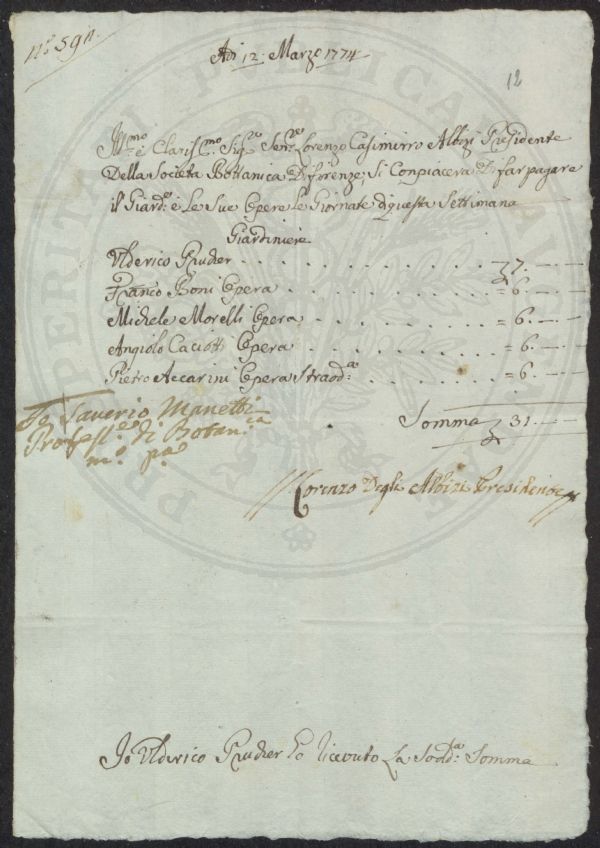 N.º 591.
Adì 12: Marzo 1774
12
Ill.mo e Claris.mo Sig.re Sen.re Lorenzo Casimirro Albizi Presidente
Della Societa Bottanica Di firenze, Si Conpiacera Di far pagare
il Giard.e e Le Sue Opere Le Giornate di questa Settimana
Giardiniere
Ulderico Prucher . . . . . . . . . . 7. —
Franco Boni Opera . . . . . . . . = 6. —
Michele Morelli Opera . . . . . . . = 6. —
Angiolo Caciotti Opera . . . . . . . = 6. —
Pietro Accarini Opera Straod.a . . . . = 6. —
Somma 31. —
Io Saverio Manetti
Profess.e di Botan.ca
m.o p.a
Lorenzo Degli Albizi Presidente
Io Ulderico Prucher ho ricevuto La Sodd.a Somma